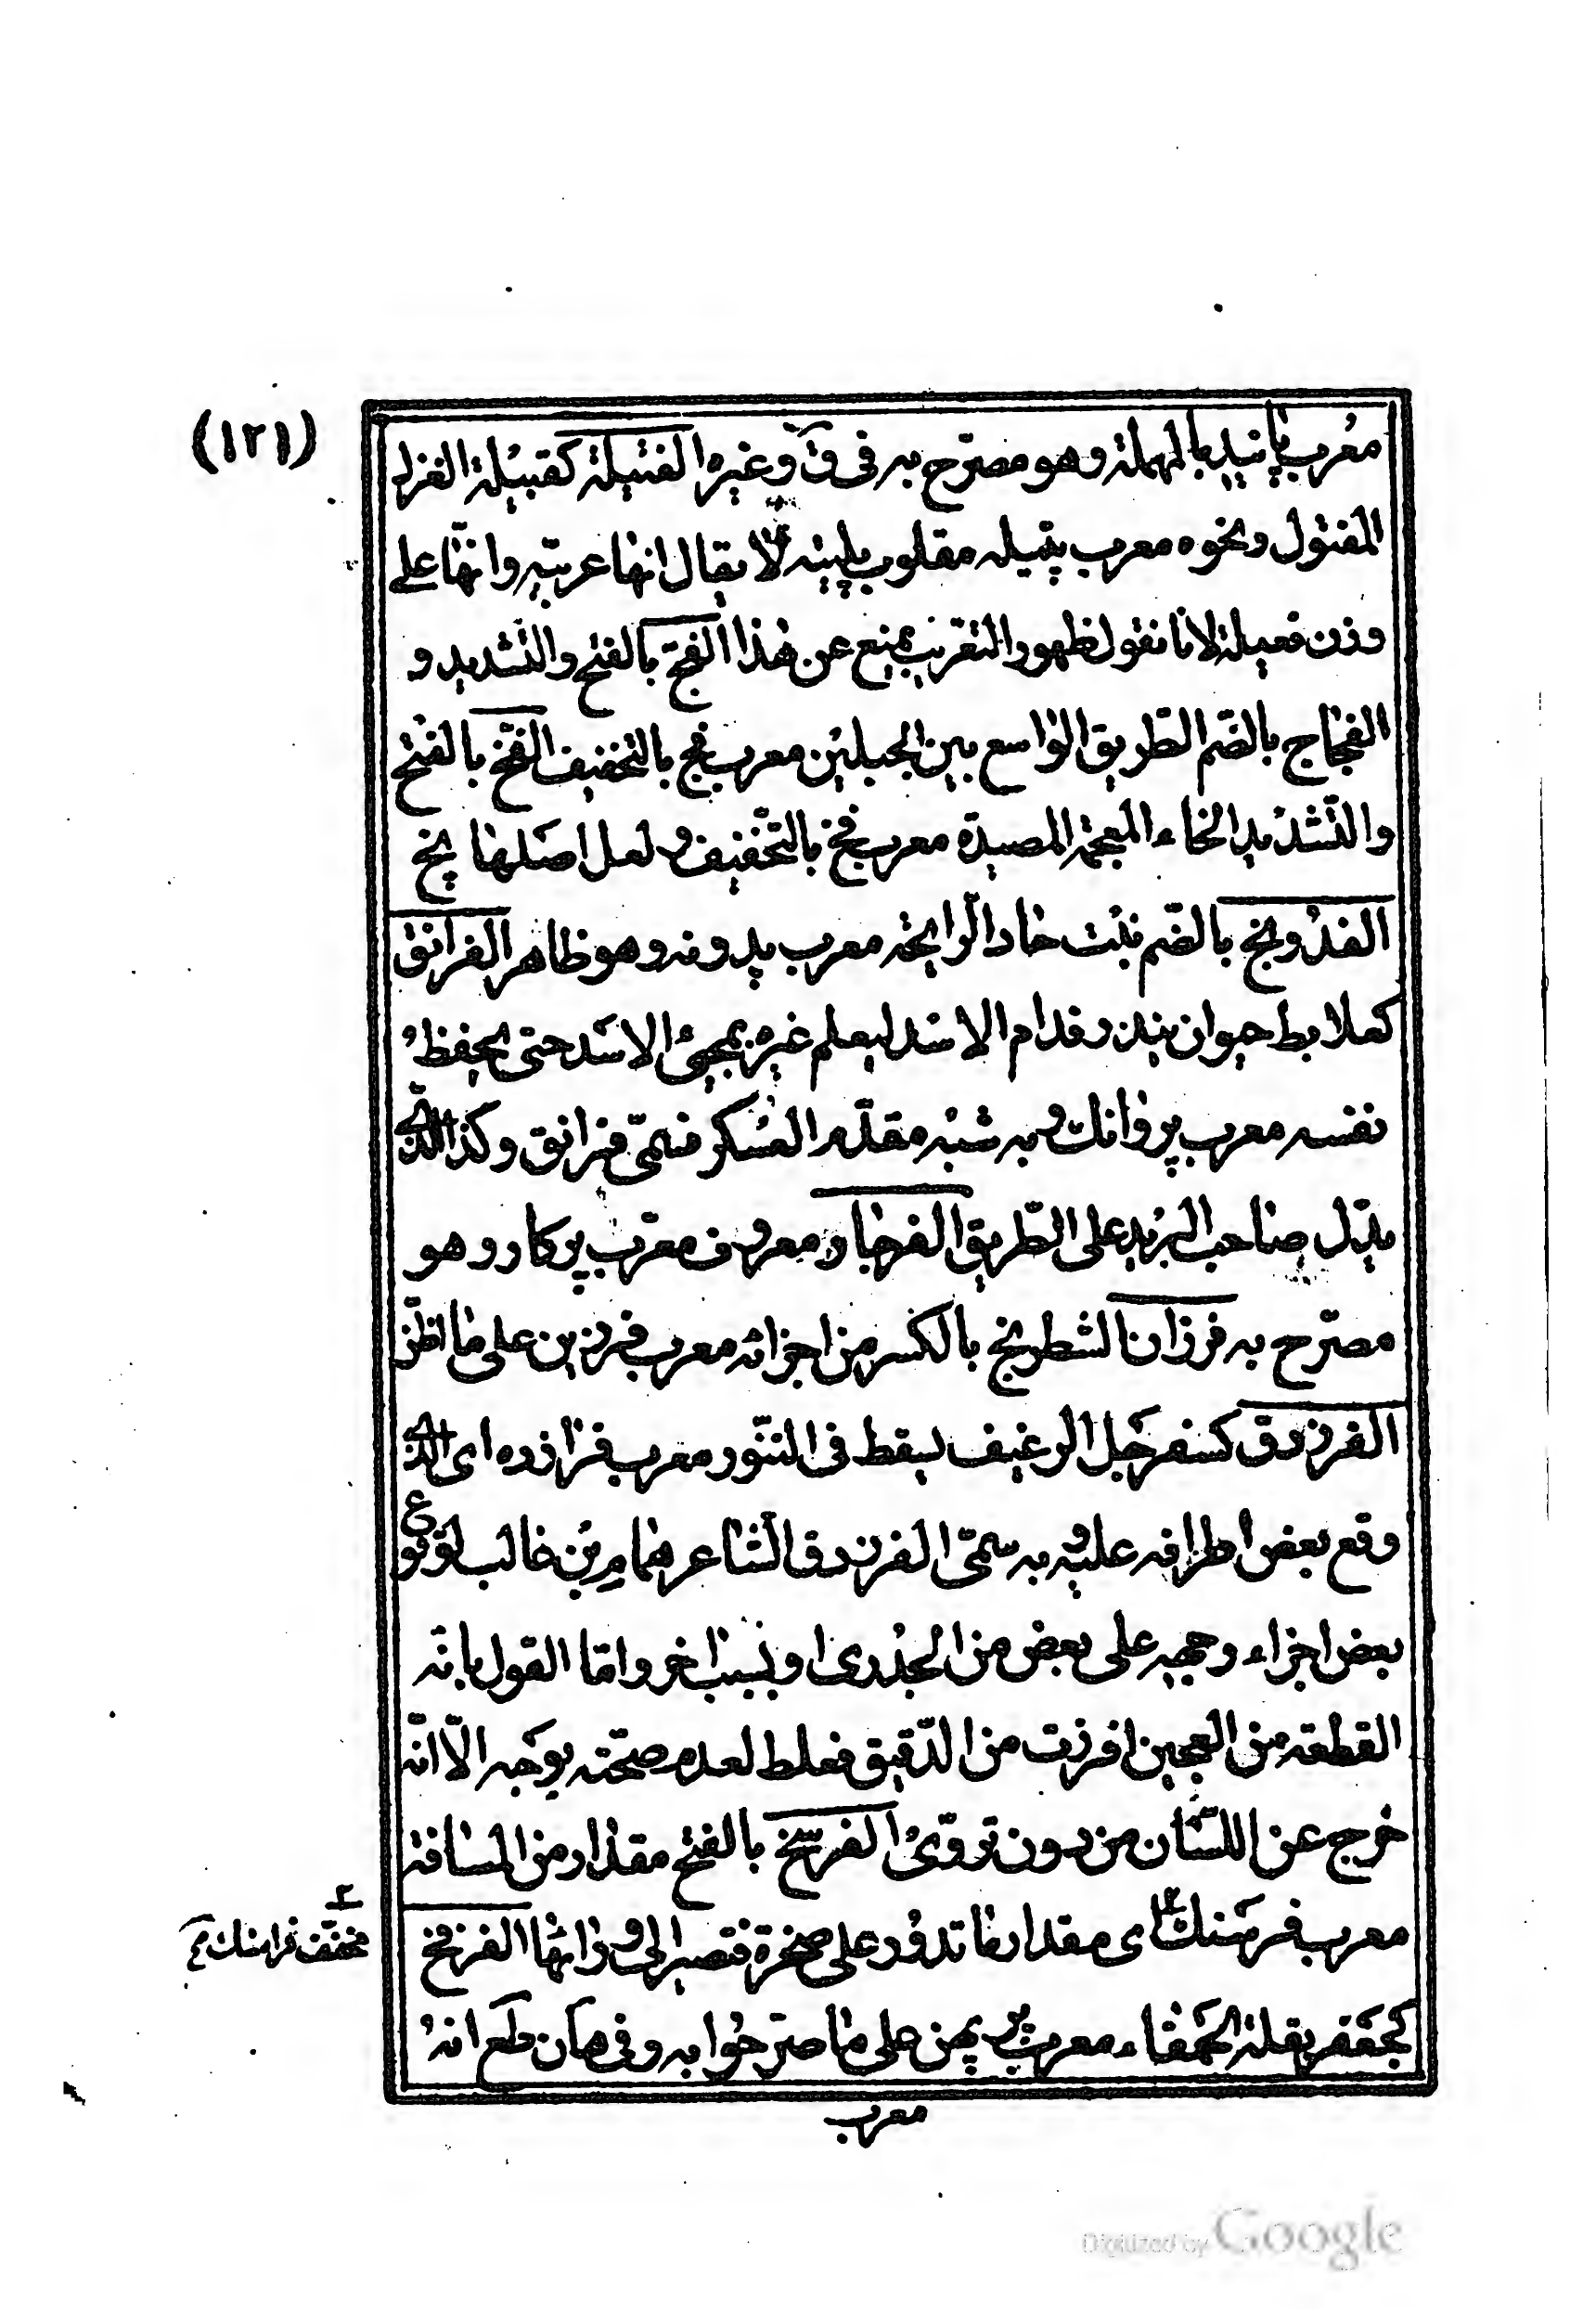 (١٢١)
معرب پانيد بالمهملة وهو مصرّح به فى ق وغيره الفتيلة كقبيلة الغزل
المفتول ونحوه معرب پتيله مقلوب پليته لا يقال انها عربيّه وانها على
وزن فعيلة لانا نقول ظهور التعريب يمنع عن هذا الفجّ بالفتح والتشديد و
الفجاج بالضّم الطّريق الواسع بين الجبلين معرب فج بالتخفيف الفخّ بالفتح
والتّشديد الخاء المعجمة المصيدة معرب فخ بالتّخفيف ولعل اصلها پخ
الفدونج بالضّم نبت حاد الرّايحة معرب پدونه وهو ظاهر الفرانق
كعلابط حيوان ينذر قدام الاسد ليعلم غيره بمجيئ الاسد حتى يحفظ
نفسه معرب پروانك وبه شبه مقدّم العسكر فسمّى فرانق وكذا الذى
يدّل صاحب البريد على الطّريق الفرجار معروف معرّب پركار وهو
مصرّح به فرزان الشطرنج بالكسر من اجزائه معرب فرزين على ما اظن
الفرزدق كسفرجل الرغيف يسقط فى التنّور معرب فرازده اى الذى
وقع بعض اطرافه عليه وبه سمّى الفرزدق الشاعر همام بن غالب لوقوع
بعض اجزاء وجهه على بعض من الجدرى او بسبب اخر وامّا القول بانّه
القطعة من العجين افرزت من الدّقيق فغلط لعدم صحّته بوجه الّا انّه
خرج عن اللسّان من دون تروّىٍ الفرسخ بالفتح مقدار من المسافة
معرب فرسنك اى مقدار ما تدور على صخرة فتصير الى ورائها الفرفخ
مخفّف فراسنك
كجعفر بقلة الحمقاء معرب پرپهن على ما صرّحوا به وفى انه
معرب
Digitized by Google